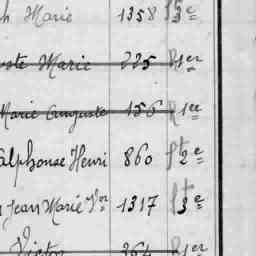 h Marie 1358 St 3e
uste Marie 225 R 1er
Marie Auguste 156 R 1er
Alphonse Henri 860 St 2e
Jean Marie Vor 1317 St 3e
Victor 264 R 1er